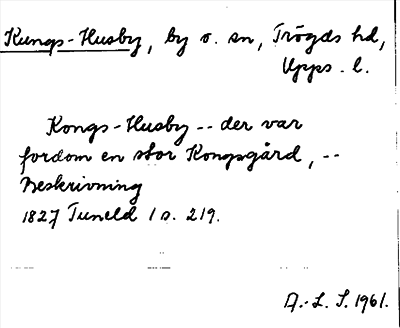 Kungs-Husby, by o. sn, Trögds hd,
Upps. l.
Kongs-Husby -- der var
fordom en stor Kongsgård, --
Beskrivning
1827 Tuneld I s. 219.
A.-L. S. 1961.